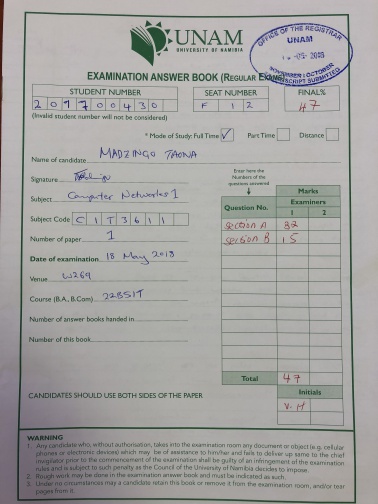 UNAM
UNIVERSITY OF NAMIBIA
OFFICE OF THE REGISTRAR
UNAM
EXAMINATION ANSWER BOOK (REGULAR EXAMS)
STUDENT NUMBER
SEAT NUMBER
FINAL%
201700430
F 12
47
(Invalid student number will not be considered)
* Mode of Study: Full Time ✓ Part Time Distance
Name of candidate MADZINGO TAONA
Signature
Subject Computer Networks 1
Subject Code CIT3611
Number of paper 1
Date of examination 18 May 2018
Venue W269
Course (B.A., B.Com) 22BSIT
Number of answer books handed in
Number of this book
Enter here the Numbers of the questions answered
Marks
Question No.
Examiners
1 2
SECTION A 32
SECTION B 15
Total 47
Initials
V.H
CANDIDATES SHOULD USE BOTH SIDES OF THE PAPER
WARNING
1. Any candidate who, without authorisation, takes into the examination room any document or object (e.g. cellular
phones or electronic devices) which may be of assistance to him/her and fails to deliver up same to the chief
invigilator prior to the commencement of the examination shall be guilty of an infringement of the examination
rules and is subject to such penalty as the Council of the University of Namibia decides to impose.
2. Rough work may be done in the examination answer book and must be indicated as such.
3. Under no circumstances may a candidate retain this book or remove it from the examination room, and/or tear
pages from it.